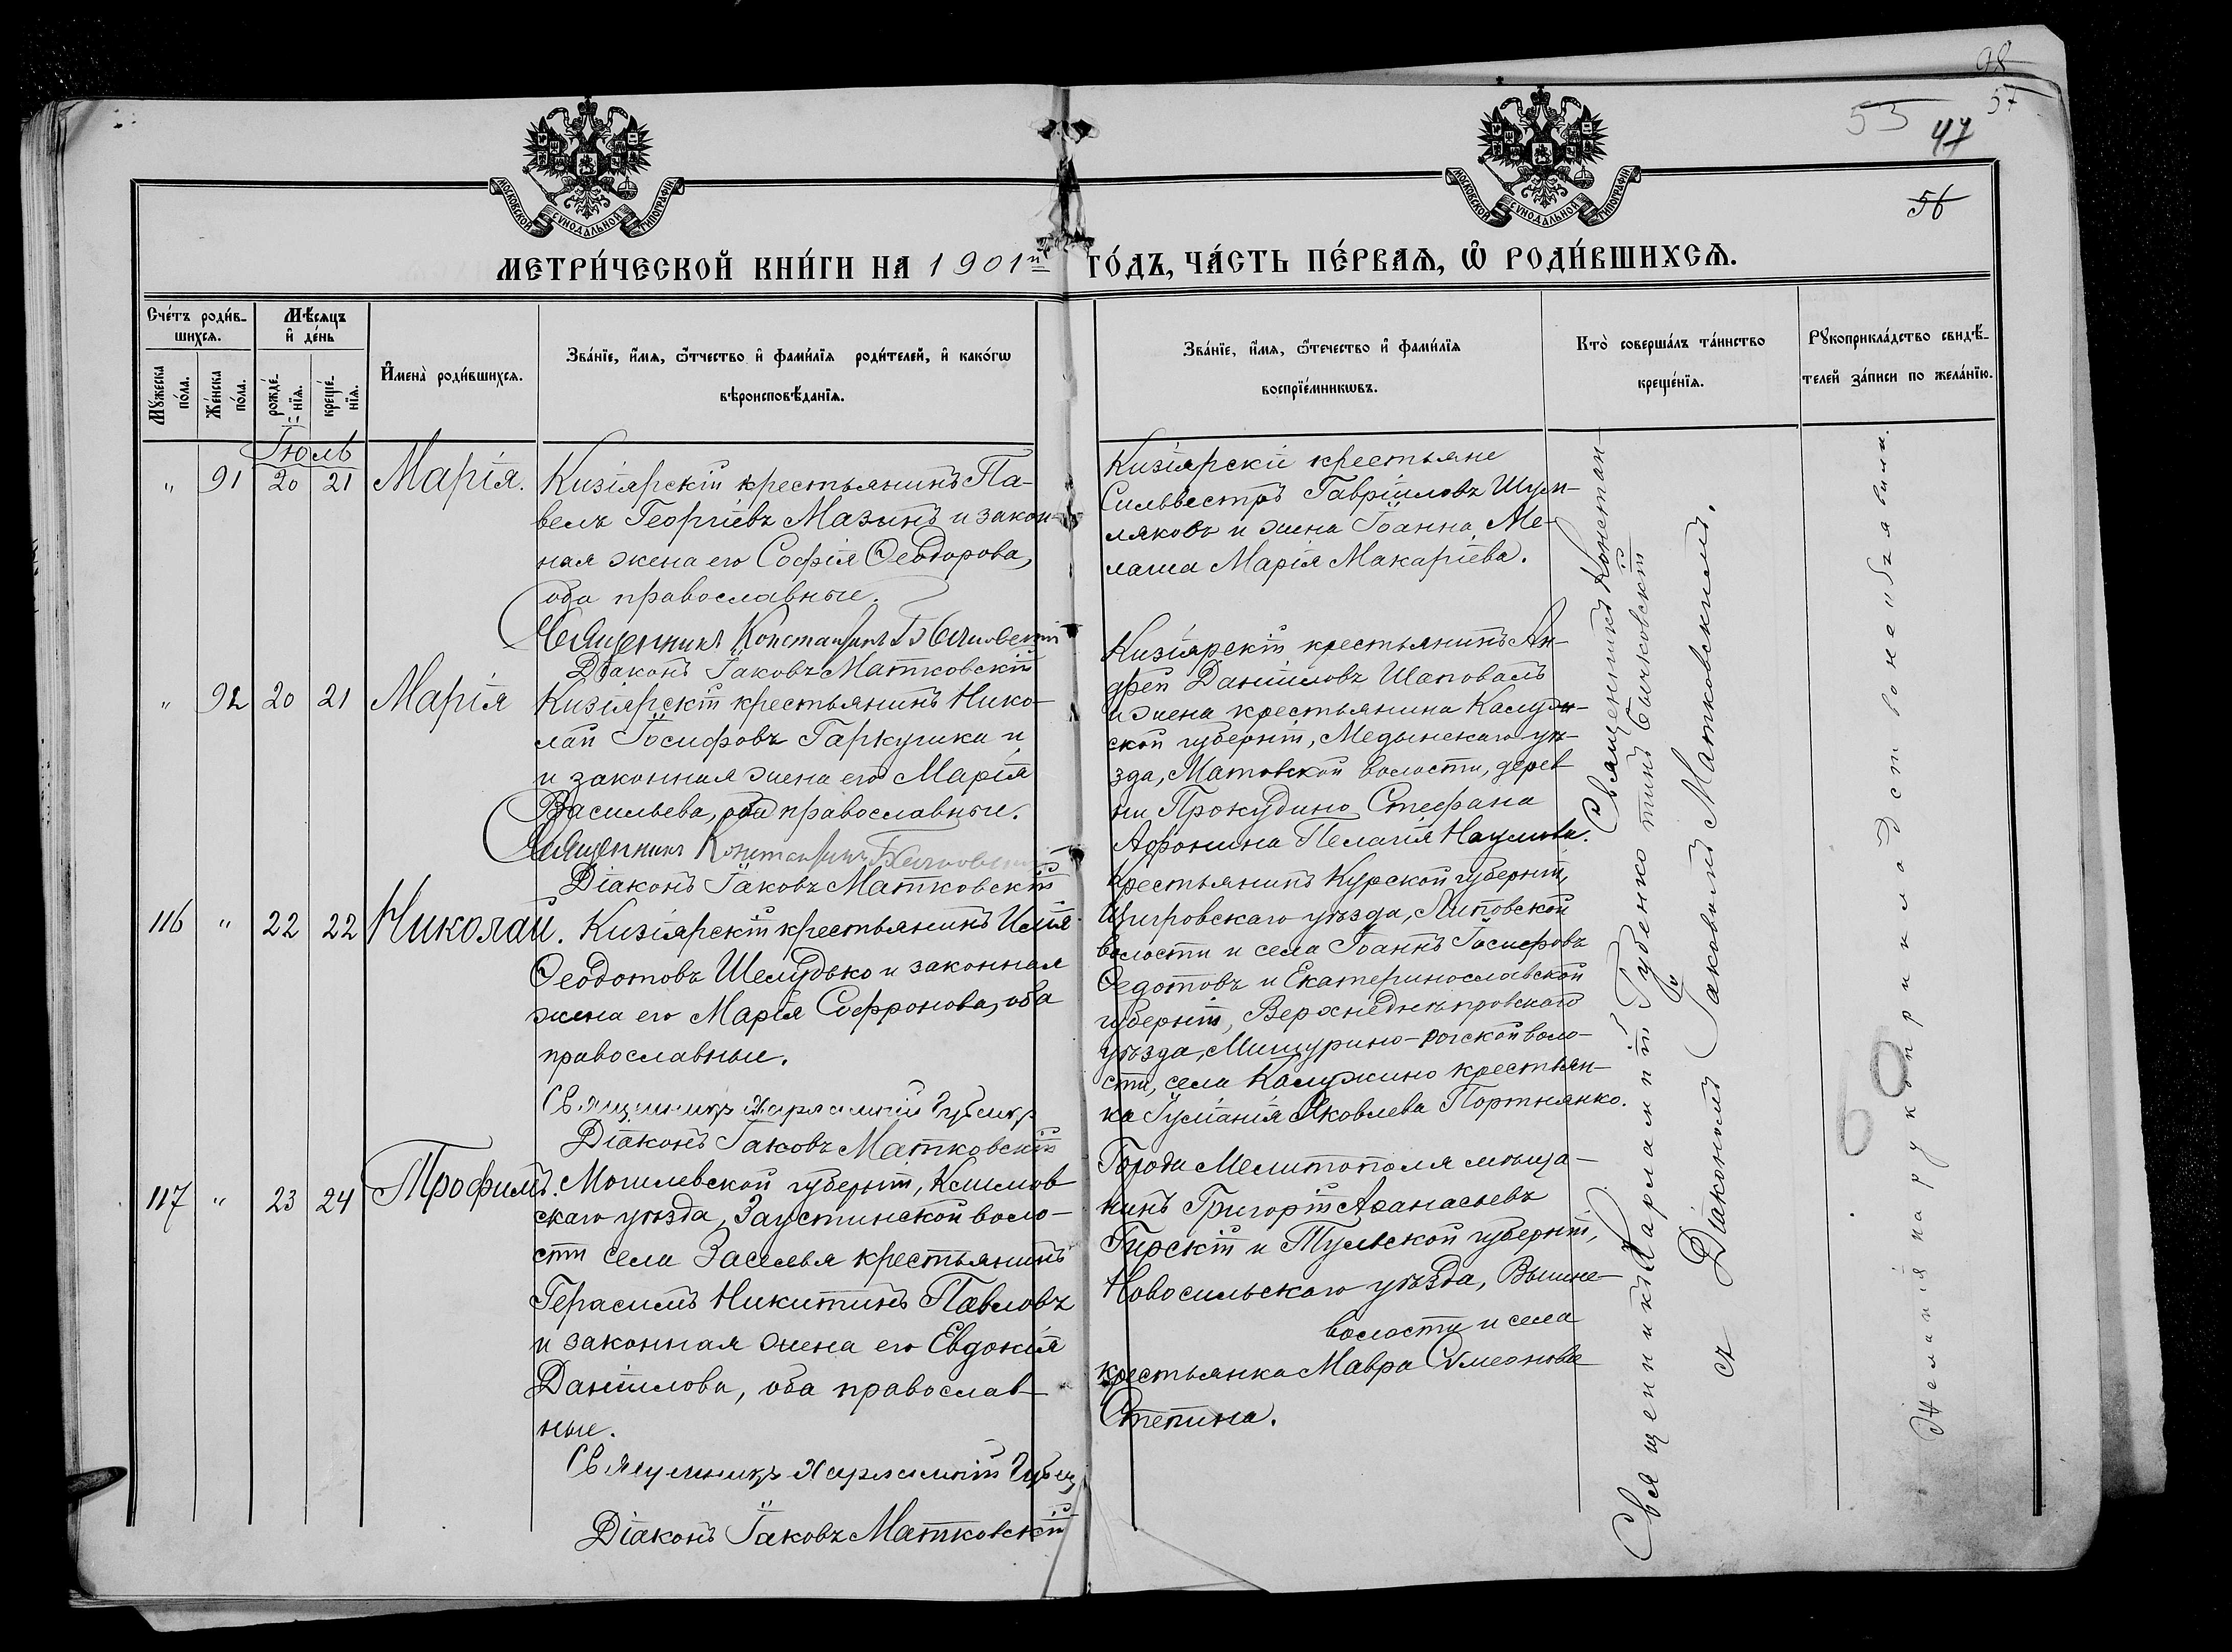 98
57
55
47
56
МОСКОВСКОЙ СѴНОДАЛЬНОЙ ТИПОГРАФІИ
МОСКОВСКОЙ СѴНОДАЛЬНОЙ ТИПОГРАФІИ
МЕТРИ́ЧЕСКОЙ КНИ́ГИ НА 1901й ГО́ДЪ, ЧА́СТЬ ПЕ́РВАѦ, Ѡ҆ РОДИ́ВШИХСѦ.
Сче́тъ роди́в-
шихсѧ.
Мꙋ́жеска по́ла.
Же́нска по́ла.
Мѣ́сѧцъ
и҆ де́нь
рожде́-
нїѧ.
креще́-
нїѧ.
И҆мена̀ роди́вшихсѧ.
Зва́нїе, и҆́мѧ, ѻ҆́тчество и҆ фами́лїѧ роди́телей, и҆ како́гѡ
вѣроисповѣ́данїѧ.
Зва́нїе, и҆́мѧ, ѻ҆́течество и҆ фами́лїѧ
воспрїе́мникѡвъ.
Кто̀ соверша́лъ та́инство
креще́нїѧ.
Рꙋкоприкла́дство свидѣ́-
телей за́писи по жела́нїю.
Іюль
" 91 20 21 Марія.
Кизіярскій крестьянинъ Па-
велъ Георгіевъ Мазинъ и закон-
ная жена его Софія Ѳеодорова,
оба православные.
Священникъ Константинъ Бычковскій
Діаконъ Іаковъ Матковскій
Кизіярскіе крестьяне
Сильвестръ Гавріиловъ Шум-
ляковъ и жена Іоанна Ме-
лаша Марія Макаріева.
" 92 20 21 Марія
Кизіярскій крестьянинъ Нико-
лай Іосифовъ Гаркушка и
и законная жена его Марія
Васильева, оба православные.
Священникъ Константинъ Бычковскій
Діаконъ Іаковъ Матковскій
Кизіярскій крестьянинъ Ан-
дрей Даніиловъ Шаповалъ
и жена крестьянина Калуж-
ской губерніи, Медынскаго уѣ-
зда, Матовской волости, дерев
ни Прокудино Стефана
Афонина Пелагія Наумова.
116 " 22 22 Николай.
Кизіярскій крестьянинъ Илія
Ѳеодотовъ Шелудько и законная
жена его Марія Софронова, оба
православные.
Священникъ Харлампій Губенко
Діаконъ Іаковъ Матковскій
Крестьянинъ Курской губерніи,
Щигровскаго уѣзда, Липовской
волости и села Іоаннъ Іосифовъ
Ѳедотовъ и Екатеринославской
губерніи, Верхнеднѣпровскаго
уѣзда, Мишурино-рогской воло-
сти, села Калужино крестьян-
ка Іуліанія Яковлева Портнянко.
117 " 23 24 Трофимъ.
Могилевской губерніи, Климов
скаго уѣзда, Заустинской воло-
сти села Заселья крестьянинъ
Герасимъ Никитинъ Павловъ
и законная жена его Евдокія
Даніилова, оба православ-
ные.
Священникъ Харлампій Губен
Діаконъ Іаковъ Матковскій
Города Мелитополя мѣща-
нинъ Григорій Аѳанасьевъ
Гирскій и Тульской губерніи,
Новосильскаго уѣзда, Вышне-
волости и села
крестьянка Мавра Сѵмеонова
Степина.
Священникъ Харлампій Губенко и Священникъ Константинъ Бычковскій
съ Діакономъ Іаковомъ Матковскимъ.
Желанія на рукоприкладство не объявили.
60